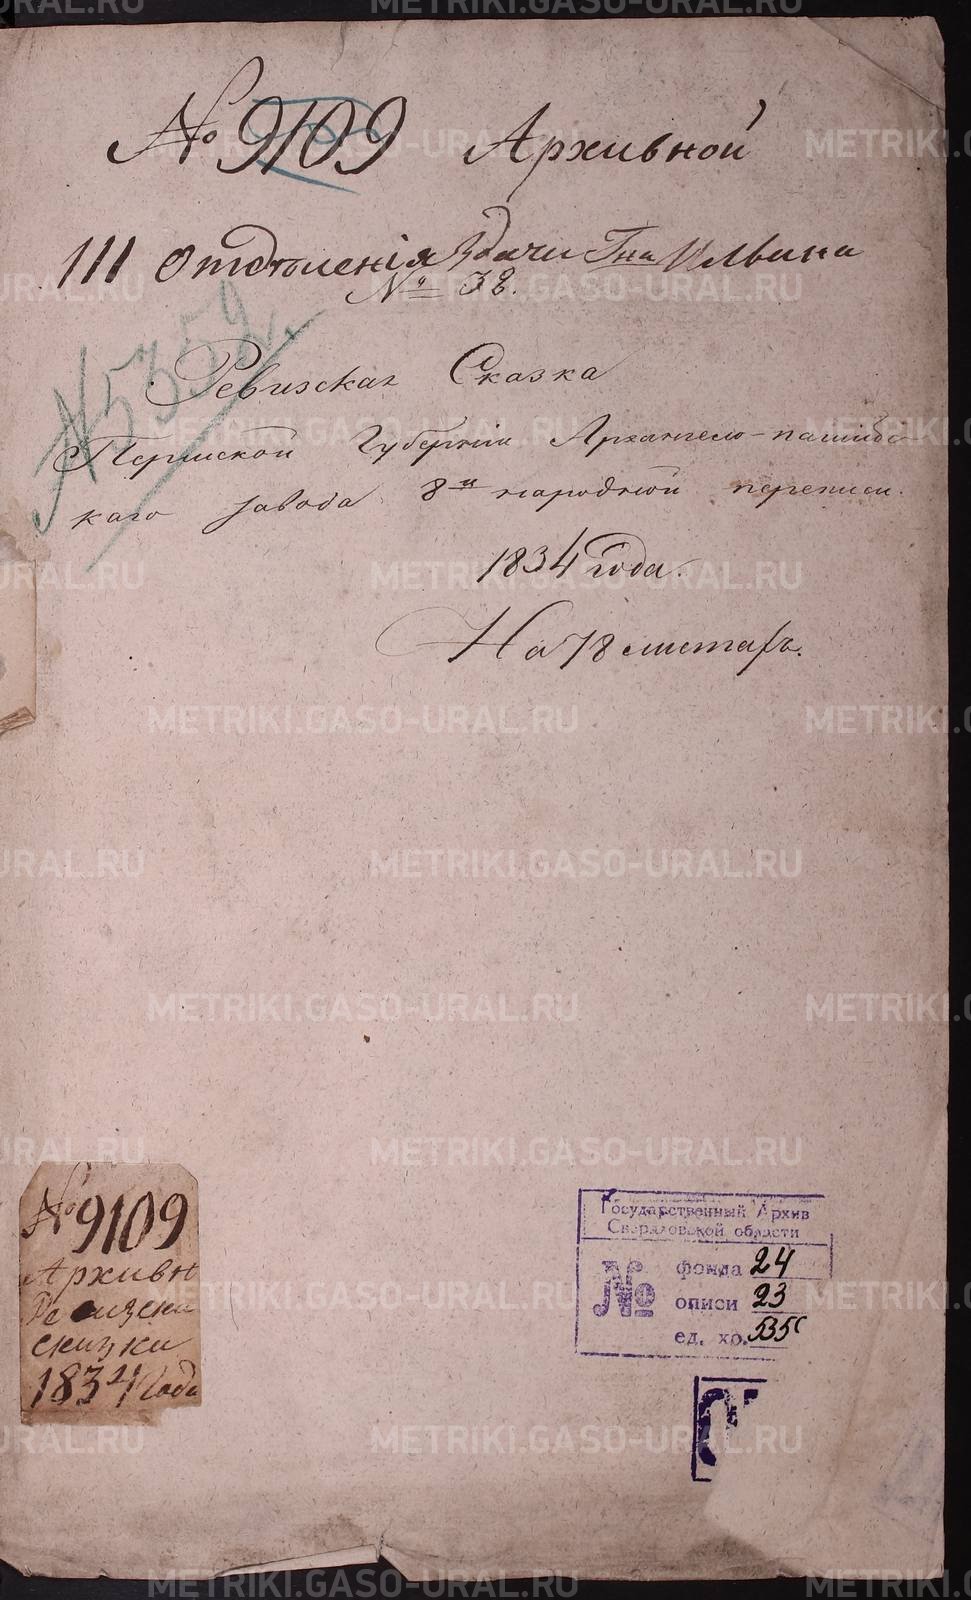 № 9109 Архивной
III Отдѣленія Здачи Гна Ильина
№ 38.
№ 5359
Ревизская Сказка
Пермской Губерніи Архангело-пашійс-
каго завода 8й народной переписи.
1834 года.
На 78 листахъ.
№ 9109
Архивн
Ревизски
сказки
1834 Года
Государственный Архив
Свердловской области
№
фонда 24
описи 23
ед. хр. 535
METRIKI.GASO-URAL.RU